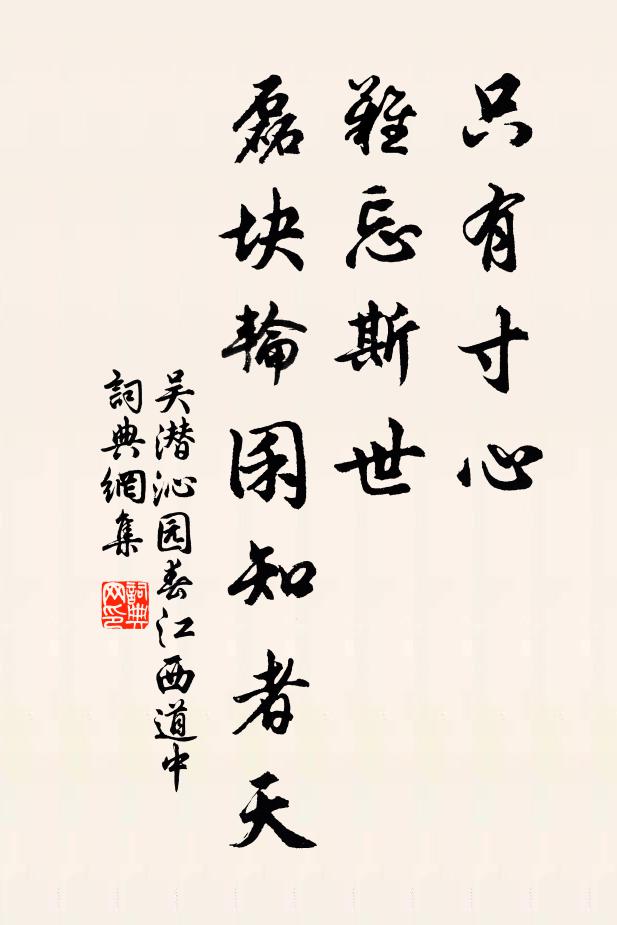 只有寸心
難忘斯世
磊块輪囷知者天
吴潜沁园春江西道中
詞典網集
詞典网印